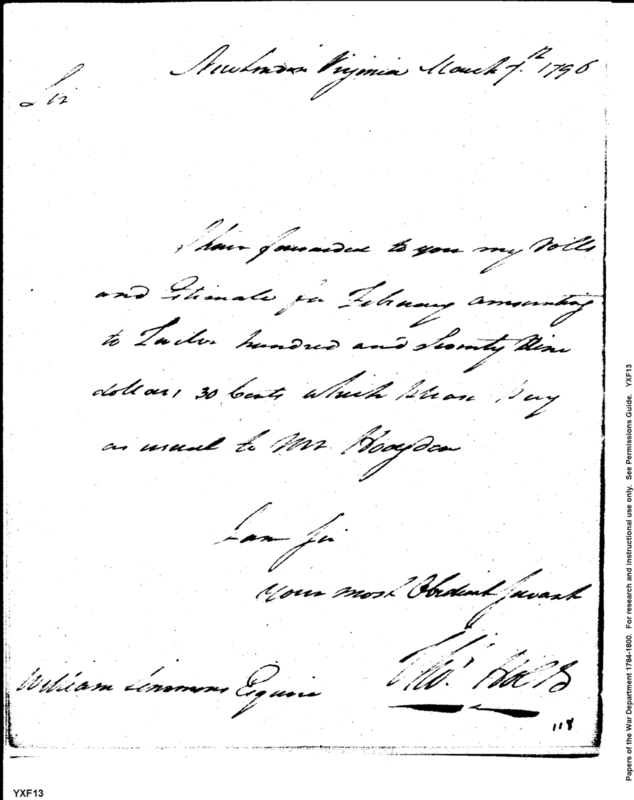 New London Virginia March 7.th 1796
Sir
I have forwarded to you my Rolls
and Estimate for February amounting
to Twelve hundred and Seventy Nine
dollars 30 Cents which please Pay
as usual to Mr. Hodgdon
I am Sir
Your most Obedient Servant
Tho.s Holt
William Simmons Esquire
118
YXF13
Papers of the War Department 1784-1800. For research and instructional use only. See Permissions Guide. YXF13